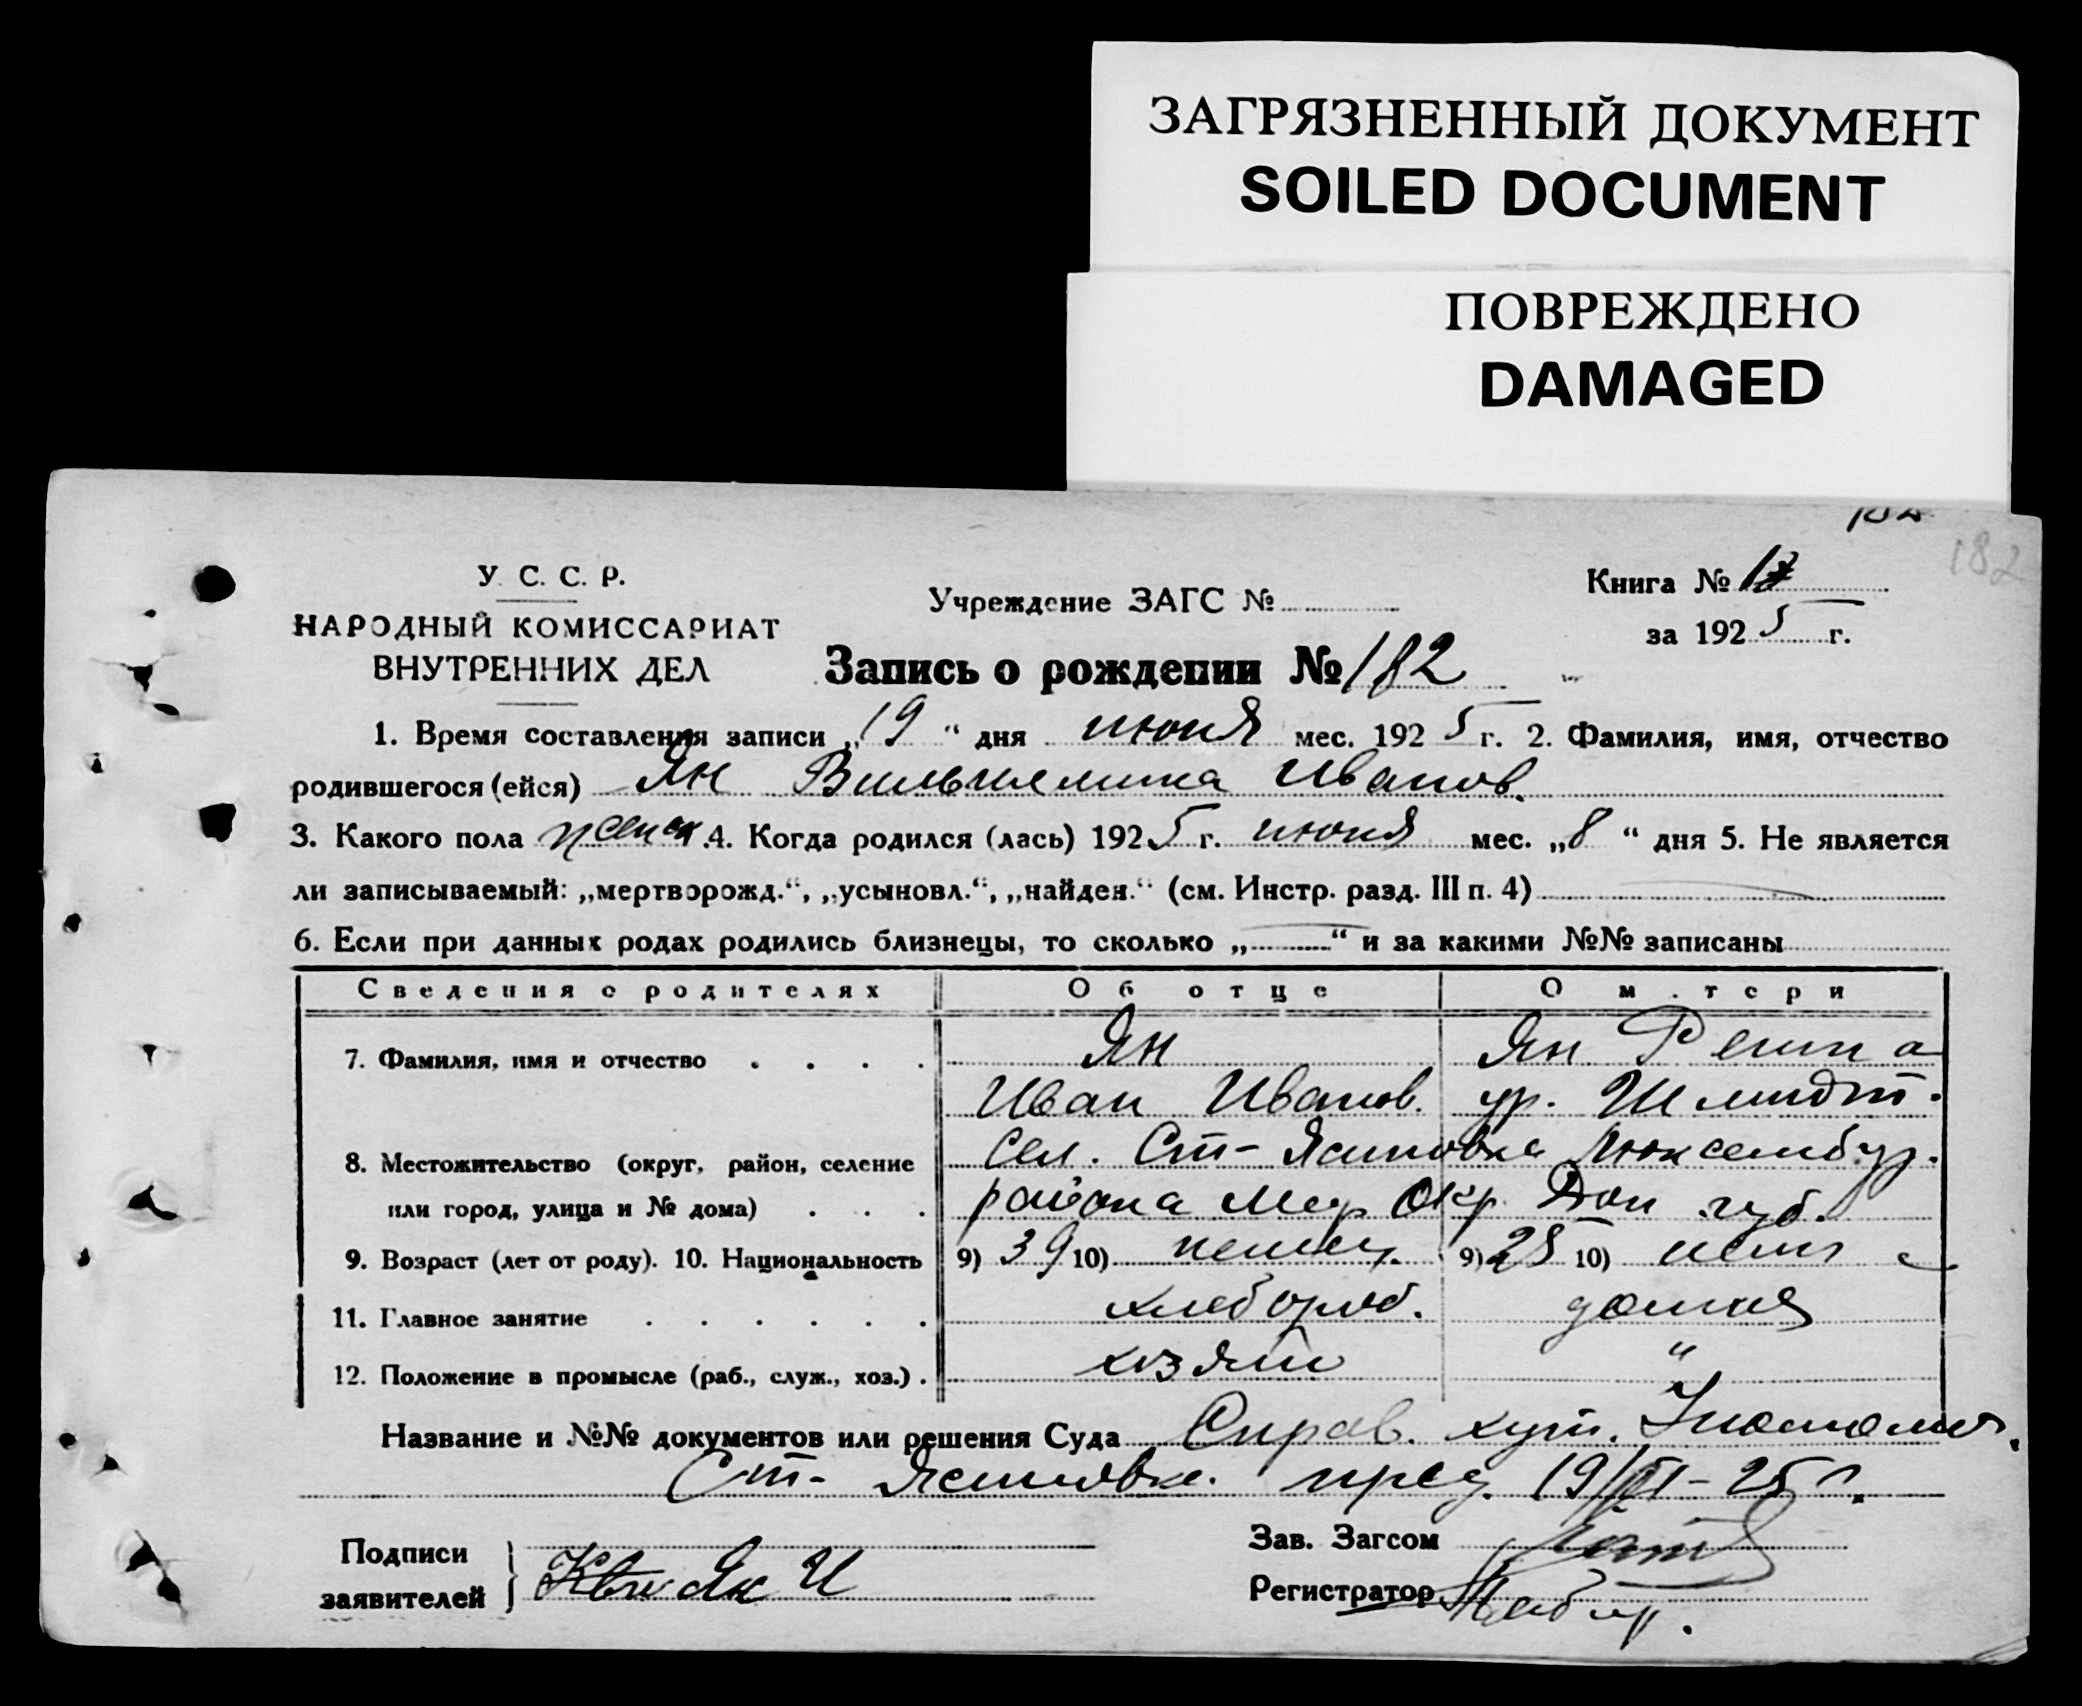 ЗАГРЯЗНЕННЫЙ ДОКУМЕНТ
SOILED DOCUMENT
ПОВРЕЖДЕНО
DAMAGED
182
У. С. С. Р.
НАРОДНЫЙ КОМИССАРИАТ
ВНУТРЕННИХ ДЕЛ
Учреждение ЗАГС №
Книга №
за 1925 г.
Запись о рождении № 182
1. Время составления записи „19“ дня июня мес. 1925 г. 2. Фамилия, имя, отчество
родившегося (ейся) Ян Вильгелмина Иванов.
3. Какого пола женск. 4. Когда родился (лась) 1925 г. июня мес. „8“ дня 5. Не является
ли записываемый: „мертворожд.“, „усыновл.“, „найден.“ (см. Инстр. разд. III п. 4)
6. Если при данных родах родились близнецы, то сколько „ “ и за какими №№ записаны
Сведения о родителях Об отце О матери
7. Фамилия, имя и отчество Ян Ян
Иван Иванов. ур. Шмидт.
8. Местожительство (округ, район, селение сел. Ст-Ясиновка Люксембур.
или город, улица и № дома) района Мар Окр Дон губ.
9. Возраст (лет от роду). 10. Национальность 9) 39 10) немец. 9) 28 10) немк
11. Главное занятие хлебороб. домня
12. Положение в промысле (раб., служ., хоз.) хозяин "
Название и №№ документов или решения Суда Справ. хут.
Ст-Ясиновка. пред. 19/VI-25 г.
Подписи
заявителей Ян И
Зав. Загсом
Регистратор